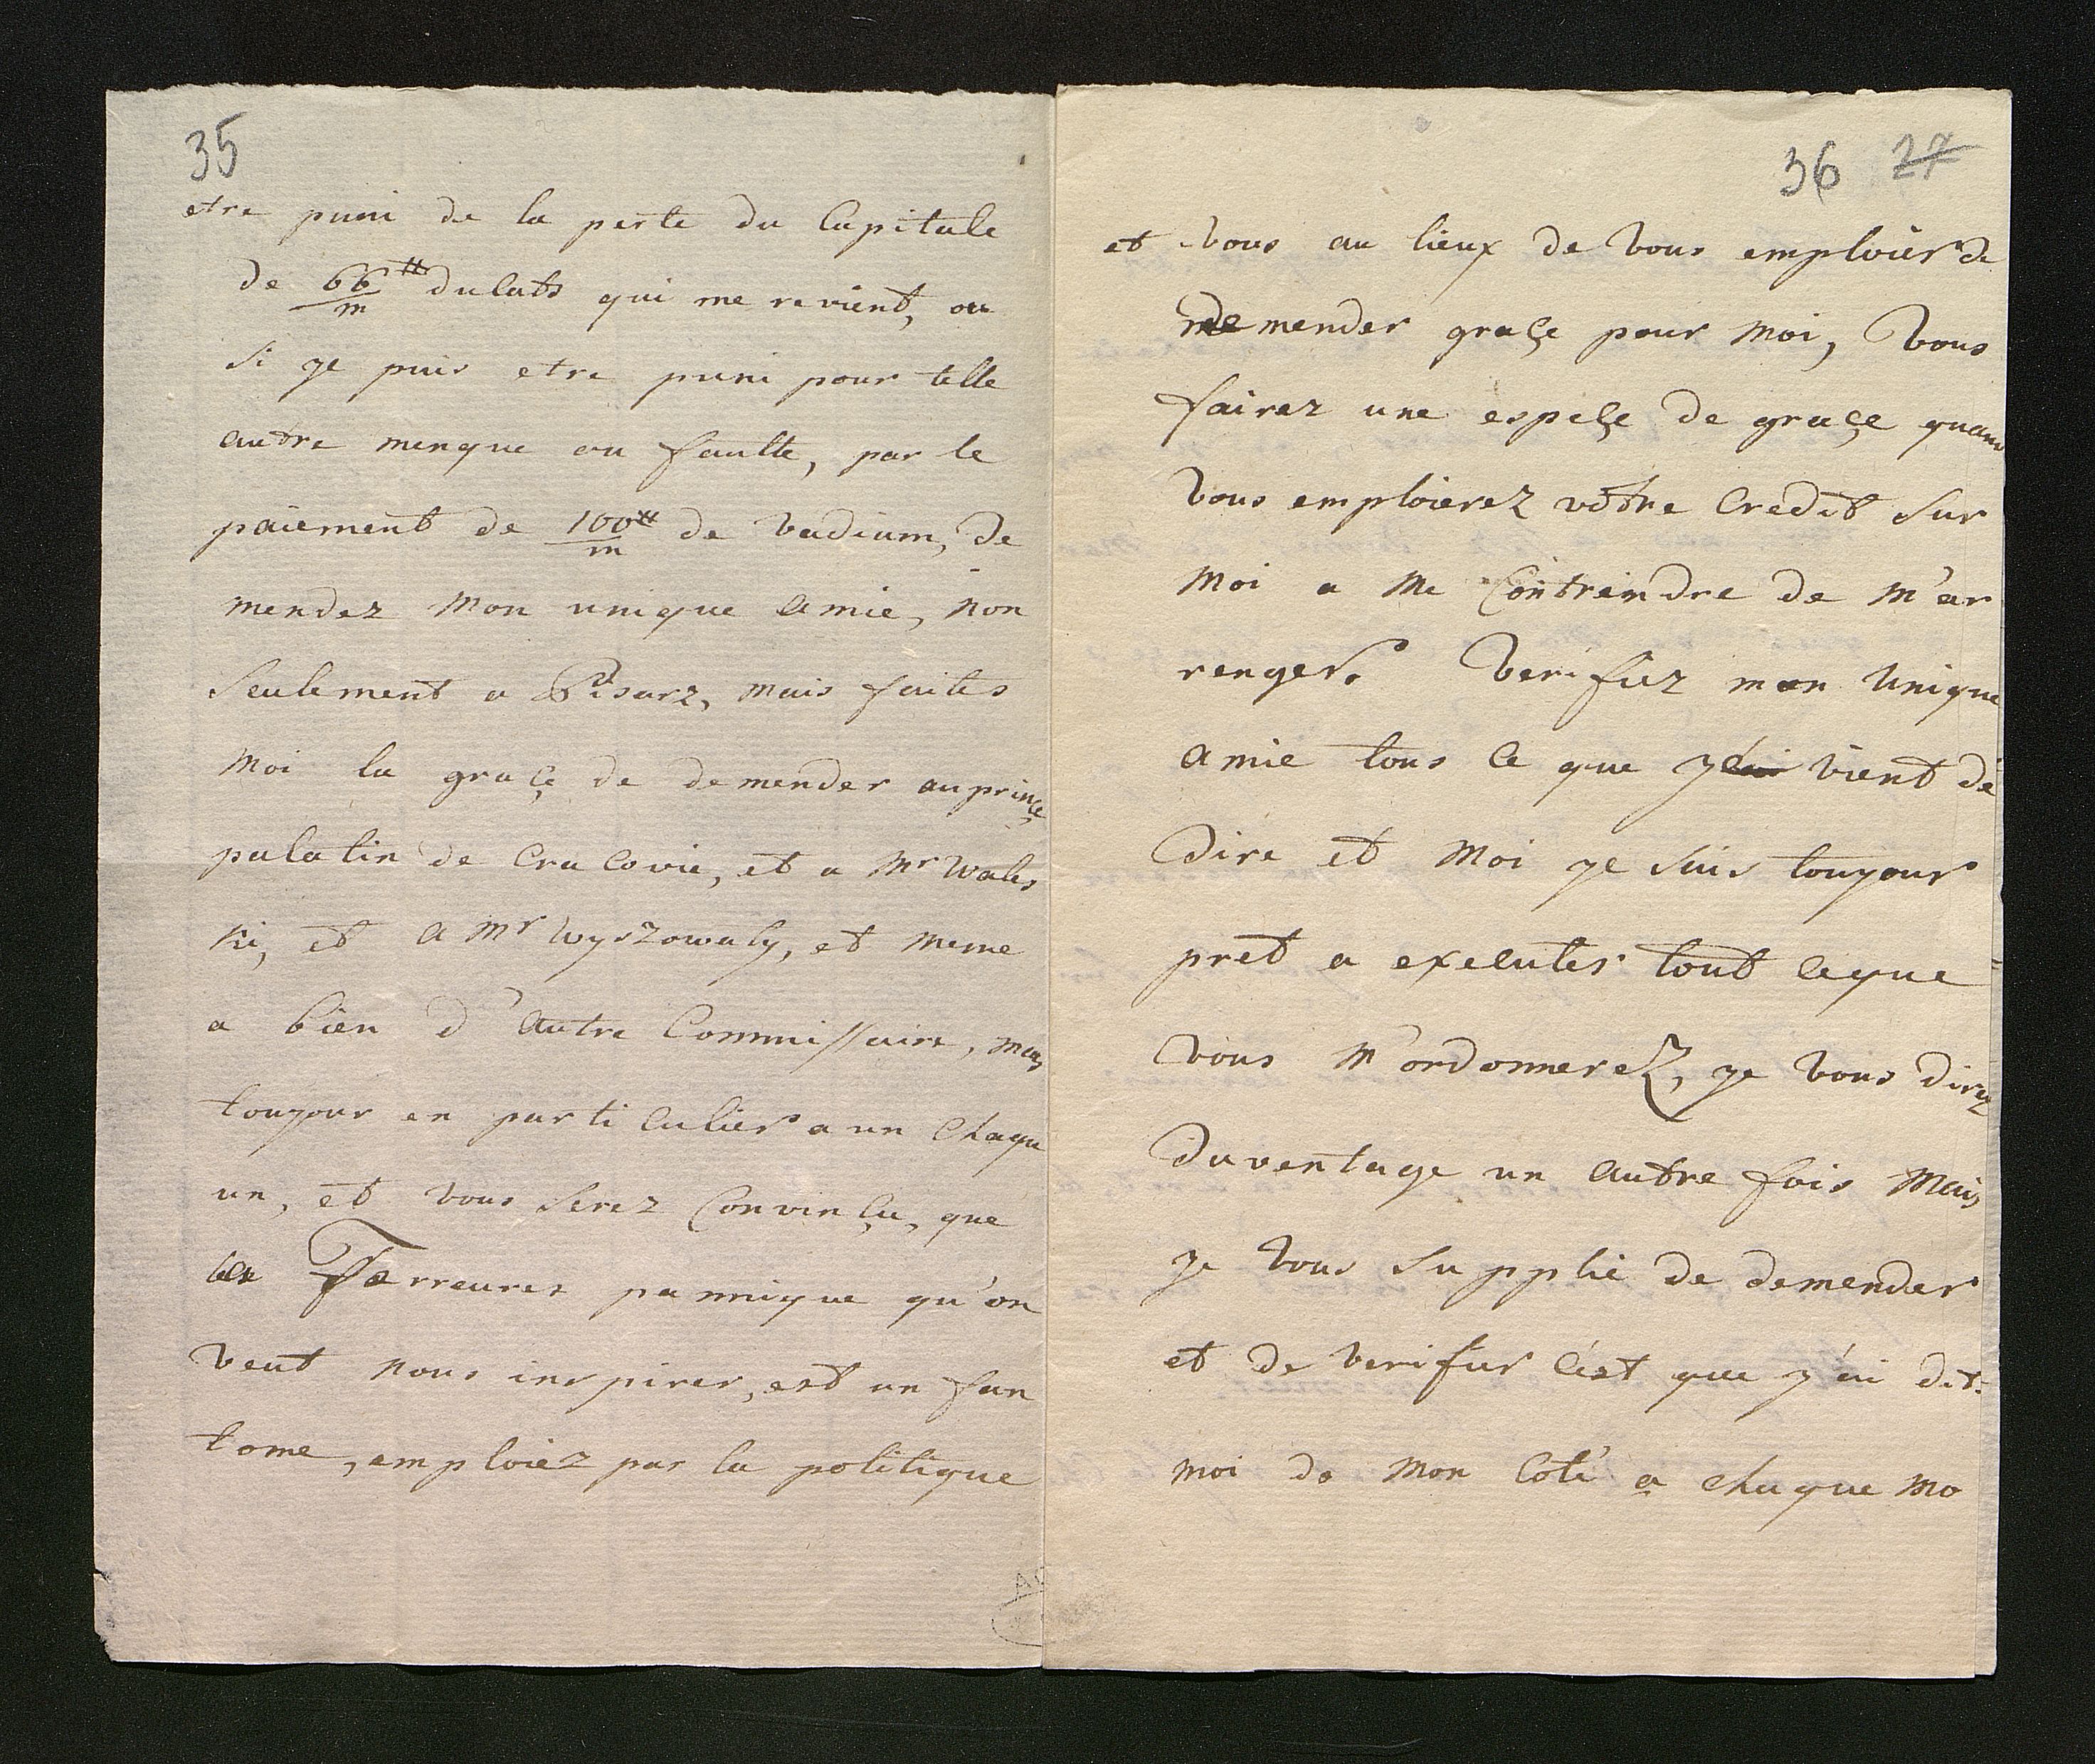 35
etre puni de la perte du Capitale
de 66/m # ducats qui me revient, ou
si ye puis etre puni pour telle
autre menque ou faulte, par le
paiement de 100/m # de vadium, de
mendez mon unique amie, non
seulement a Pisarz, mais faites
moi la graçe de demender au prinçe
palatin de Cracovie, et a Mr Wales
ki, et a Mr Wyszowaty, et meme
a bien d'autre Commissaire, mais
touyour en particulier a un chaqu
un, et vous serez Convinçu, que
les Terreures pannique qu'on
veut nous inspirer, est un fan
tome, emploiez par la politique
36 27
et vous au lieux de vous emploier de
demender graçe pour moi, vous
fairez une espeçe de graçe quand
vous emploierez vôtre Credit sur
moi a me Contreindre de m'ar
renger. Verifiez mon unique
amie tous ce que y vient de
dire et moi ye suis touyour
prêt a executer tout ceque
vous m'ordonnerez, ye vous direz
daventage un autre fois mais
ye vous supplie de demender
et de verifier c'est que y'ai dit.
moi de mon Coté a chaque mo